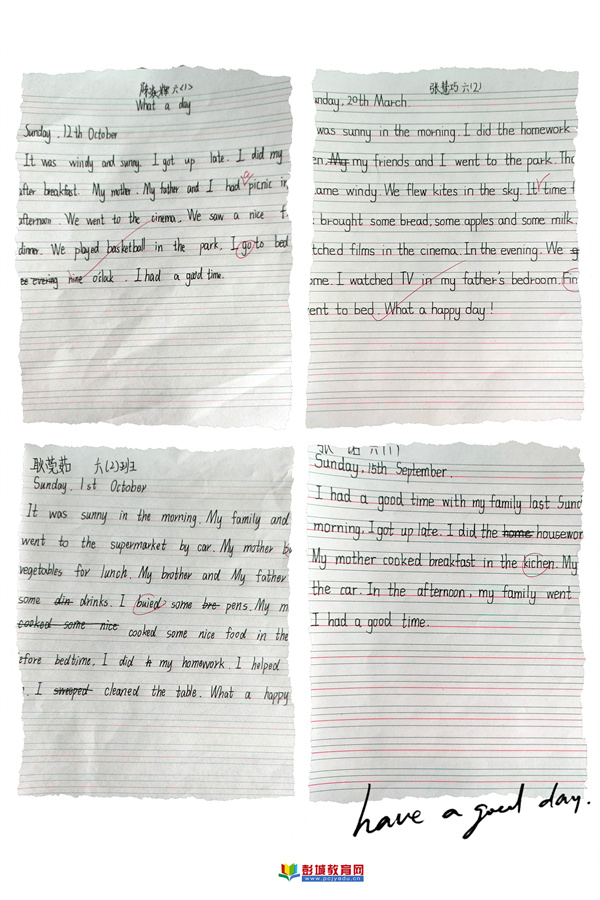 六(1)
What a day
Sunday, 12th October
It was windy and sunny. I got up late. I did my
after breakfast. My mother. My father and I had a picnic in
afternoon. We went to the cinema. We saw a nice f
dinner. We played basketball in the park. I go to bed
evering hine o'slak. I had a good time.
张慧巧 六(2)
unday, 20th March.
was sunny in the morning. I did the homework
en. My my friends and I went to the park. The
ame windy. We flew kites in the sky. It time f
brought some bread, some apples and some milk.
tched films in the cinema. In the evening. We g
ome. I watched TV in my father's bedroom. Fin
ent to bed. What a happy day!
耿莹茹 六(2)班
Sunday, 1st October
It was sunny in the morning. My family and
went to the supermarket by car. My mother bu
vegetables for lunch. My brother and My father
some din drinks. I buied some bre pens. My m
cooked some nice cooked some nice food in the
efore bedtime. I did h my homework. I helped
. I sweped cleaned the table. What a happy
六(1)
Sunday, 15th September.
I had a good time with my family last Sund
morning. I got up late. I did the home housewor
My mother cooked breakfast in the kichen. My
the car. In the afternoon, my family went
I had a good time.
have a good day.
彭城教育网
www.pcjyedu.cn